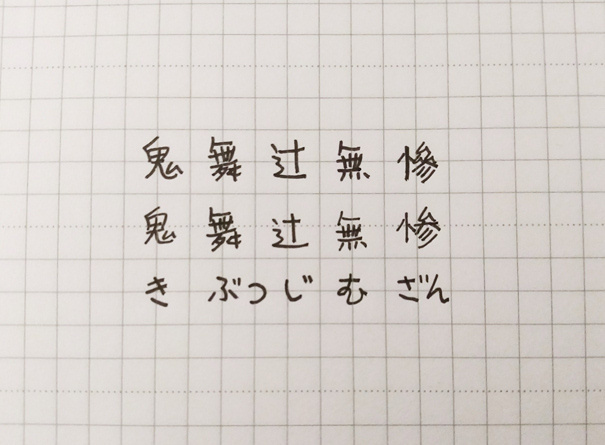 鬼舞辻無惨
鬼舞辻無惨
きぶつじむざん